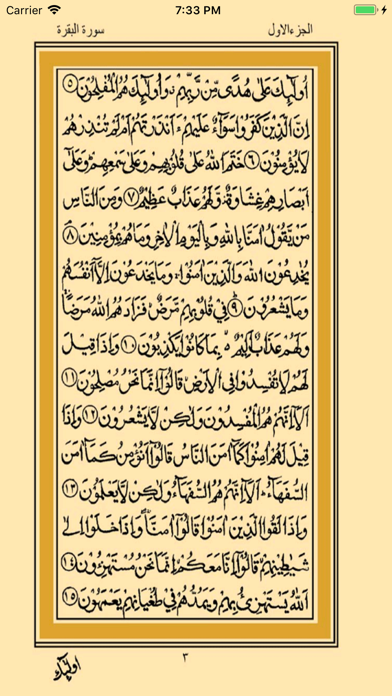 Carrier 7:33 PM
الجزء الاول سورة البقرة
اُولٰٓئِكَ عَلٰى هُدًى مِّنْ رَّبِّهِمْ ۗ وَاُولٰٓئِكَ هُمُ الْمُفْلِحُوْنَ ﴿۵﴾
اِنَّ الَّذِيْنَ كَفَرُوْا سَوَآءٌ عَلَيْهِمْ ءَاَنْذَرْتَهُمْ اَمْ لَمْ تُنْذِرْهُمْ
لَا يُؤْمِنُوْنَ ﴿۶﴾ خَتَمَ اللّٰهُ عَلٰى قُلُوْبِهِمْ وَعَلٰى سَمْعِهِمْ ؕ وَعَلٰٓى
اَبْصَارِهِمْ غِشَاوَةٌ وَّلَهُمْ عَذَابٌ عَظِيْمٌ ﴿۷﴾ وَمِنَ النَّاسِ
مَنْ يَّقُوْلُ اٰمَنَّا بِاللّٰهِ وَبِالْيَوْمِ الْاٰخِرِ وَمَا هُمْ بِمُؤْمِنِيْنَ ﴿۸﴾
يُخٰدِعُوْنَ اللّٰهَ وَالَّذِيْنَ اٰمَنُوْا ۚ وَمَا يَخْدَعُوْنَ اِلَّآ اَنْفُسَهُمْ
وَمَا يَشْعُرُوْنَ ﴿۹﴾ فِيْ قُلُوْبِهِمْ مَّرَضٌ ۙ فَزَادَهُمُ اللّٰهُ مَرَضًا ۚ
وَلَهُمْ عَذَابٌ اَلِيْمٌ ۢ بِمَا كَانُوْا يَكْذِبُوْنَ ﴿۱۰﴾ وَاِذَا قِيْلَ
لَهُمْ لَا تُفْسِدُوْا فِي الْاَرْضِ ۙ قَالُوْٓا اِنَّمَا نَحْنُ مُصْلِحُوْنَ ﴿۱۱﴾
اَلَآ اِنَّهُمْ هُمُ الْمُفْسِدُوْنَ وَلٰكِنْ لَّا يَشْعُرُوْنَ ﴿۱۲﴾ وَاِذَا
قِيْلَ لَهُمْ اٰمِنُوْا كَمَآ اٰمَنَ النَّاسُ قَالُوْٓا اَنُؤْمِنُ كَمَآ اٰمَنَ
السُّفَهَآءُ ؕ اَلَآ اِنَّهُمْ هُمُ السُّفَهَآءُ وَلٰكِنْ لَّا يَعْلَمُوْنَ ﴿۱۳﴾
وَاِذَا لَقُوا الَّذِيْنَ اٰمَنُوْا قَالُوْٓا اٰمَنَّا ۖ وَاِذَا خَلَوْا اِلٰى
شَيٰطِيْنِهِمْ ۙ قَالُوْٓا اِنَّا مَعَكُمْ ۙ اِنَّمَا نَحْنُ مُسْتَهْزِءُوْنَ ﴿۱۴﴾
اَللّٰهُ يَسْتَهْزِئُ بِهِمْ وَيَمُدُّهُمْ فِيْ طُغْيَانِهِمْ يَعْمَهُوْنَ ﴿۱۵﴾
۳
اولٰٓئك